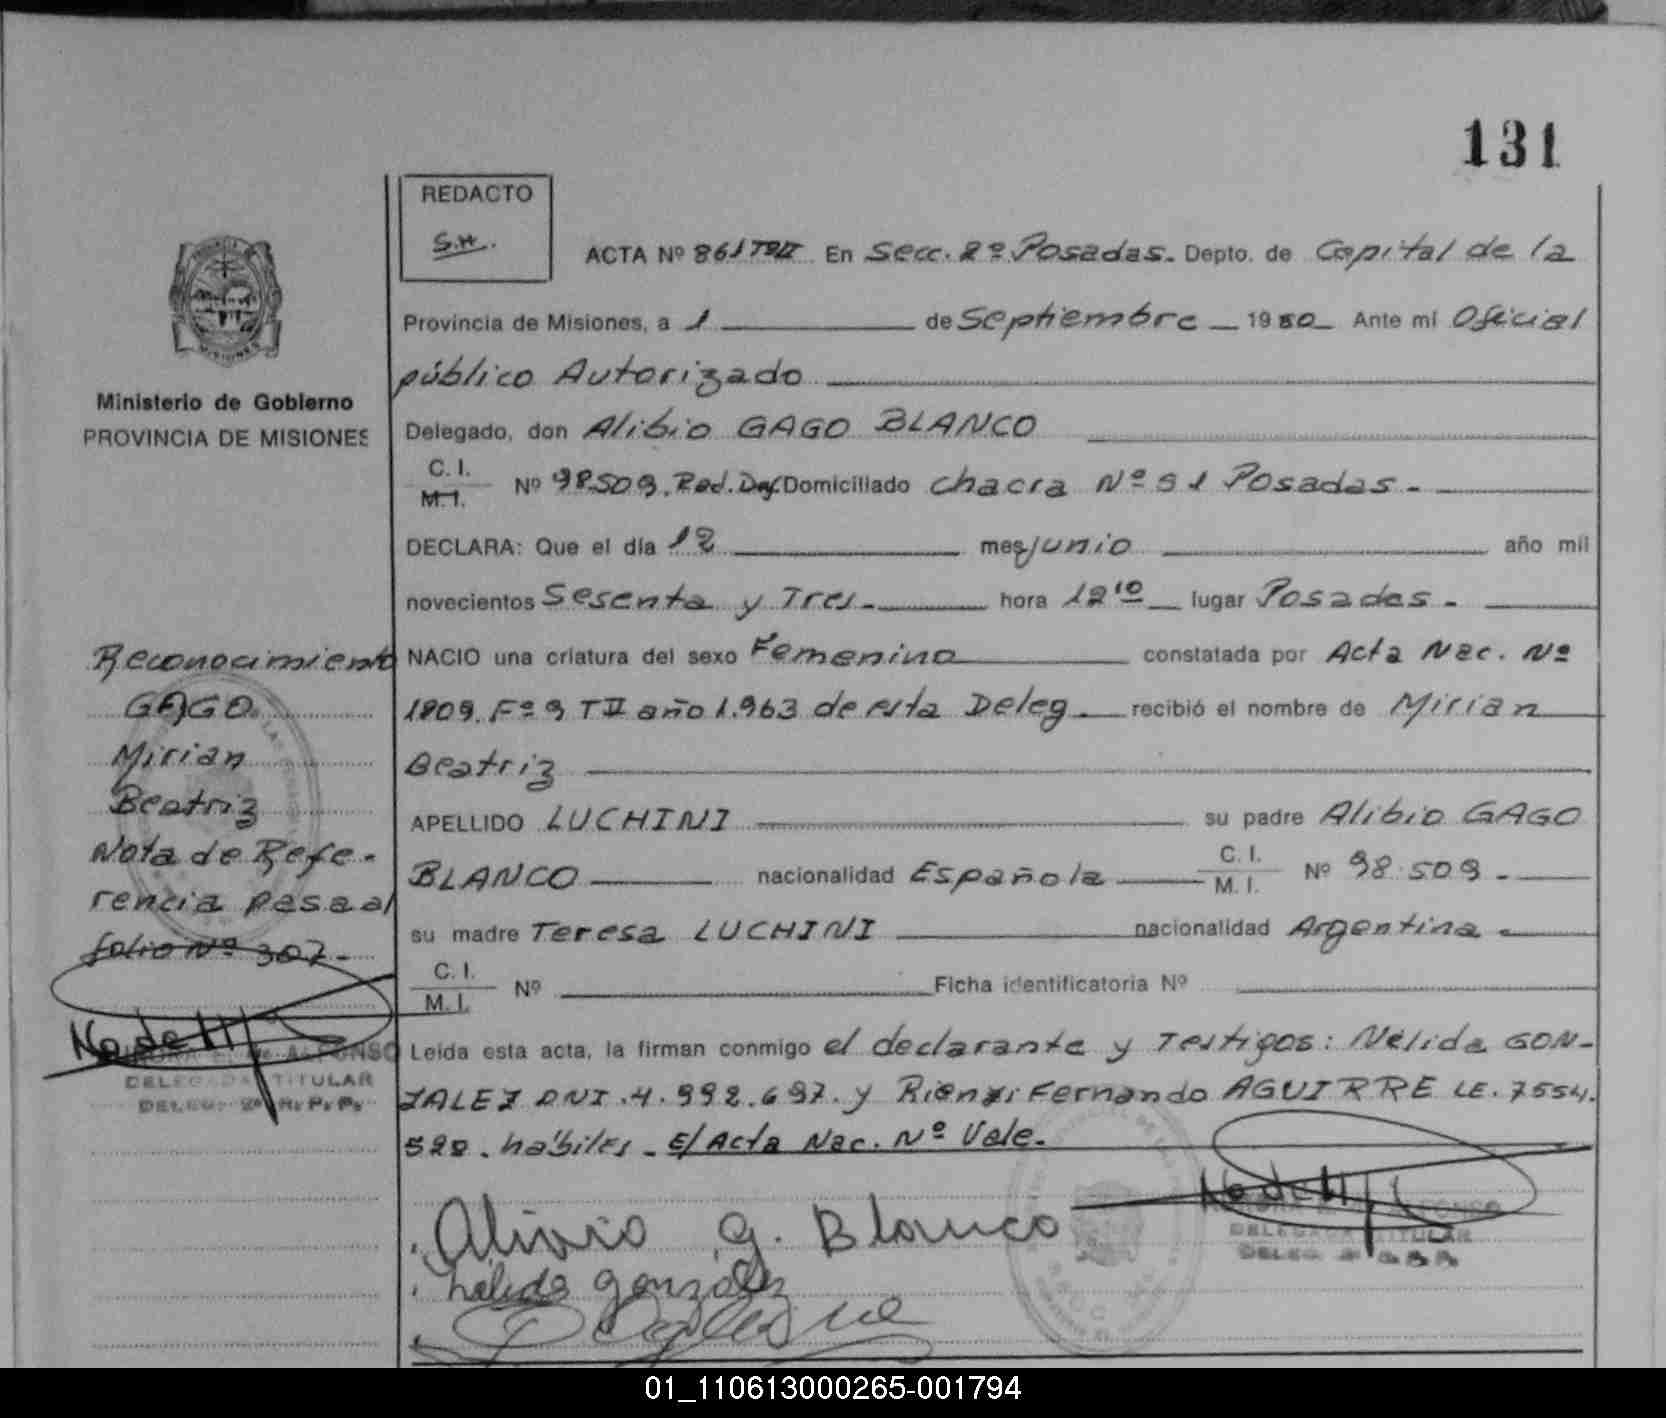 131
REDACTO
S.H.
ACTA Nº 861 TºII En Secc. 2º Posadas. Depto. de Capital de la
Provincia de Misiones, a 1 de Septiembre 1980 Ante mi Oficial
público Autorizado
Delegado, don Alibio GAGO BLANCO
C. I.
M. I.
Nº 98.509. Domiciliado chacra Nº 91 Posadas.
DECLARA: Que el día 12 mes junio año mil
novecientos Sesenta y Tres. hora 12¹⁰ lugar Posadas.
NACIO una criatura del sexo Femenino constatada por Acta Nac. Nº
1809. Fº 9 TII año 1.963 de esta Deleg. recibió el nombre de Mirian
Beatriz
APELLIDO LUCHINI su padre Alibio GAGO
BLANCO nacionalidad Española C. I. M. I. Nº 98.509.
su madre Teresa LUCHINI nacionalidad Argentina.
C. I.
M. I.
Nº Ficha identificatoria Nº
Leída esta acta, la firman conmigo el declarante y Testigos: Nélida GON-
ZALEZ DNI. 4.992.697. y Rienzi Fernando AGUIRRE LE. 7554.
528. hábiles. E/ Acta Nac. Nº Vale.
Alivio g. Blanco
gonzalez
ALFONSO
DELEGADA TITULAR
DELEG.
MISIONES
Ministerio de Gobierno
PROVINCIA DE MISIONES
Reconocimiento
GAGO
Mirian
Beatriz
Nota de Refe-
rencia pasa al
folio Nº 307.
ALFONSO
DELEGADA TITULAR
DELEG. 2ª R. P. P.
01_110613000265-001794